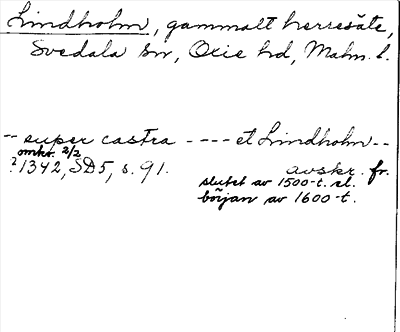 Lindholm, gammalt herresäte,
Svedala sn, Oxie hd, Malm. l.
-- super castra ---- et Lindholm --
omkr. 2/2
? 1342, SD5, s. 91. avskr. fr.
slutet av 1500-t. el.
början av 1600-t.